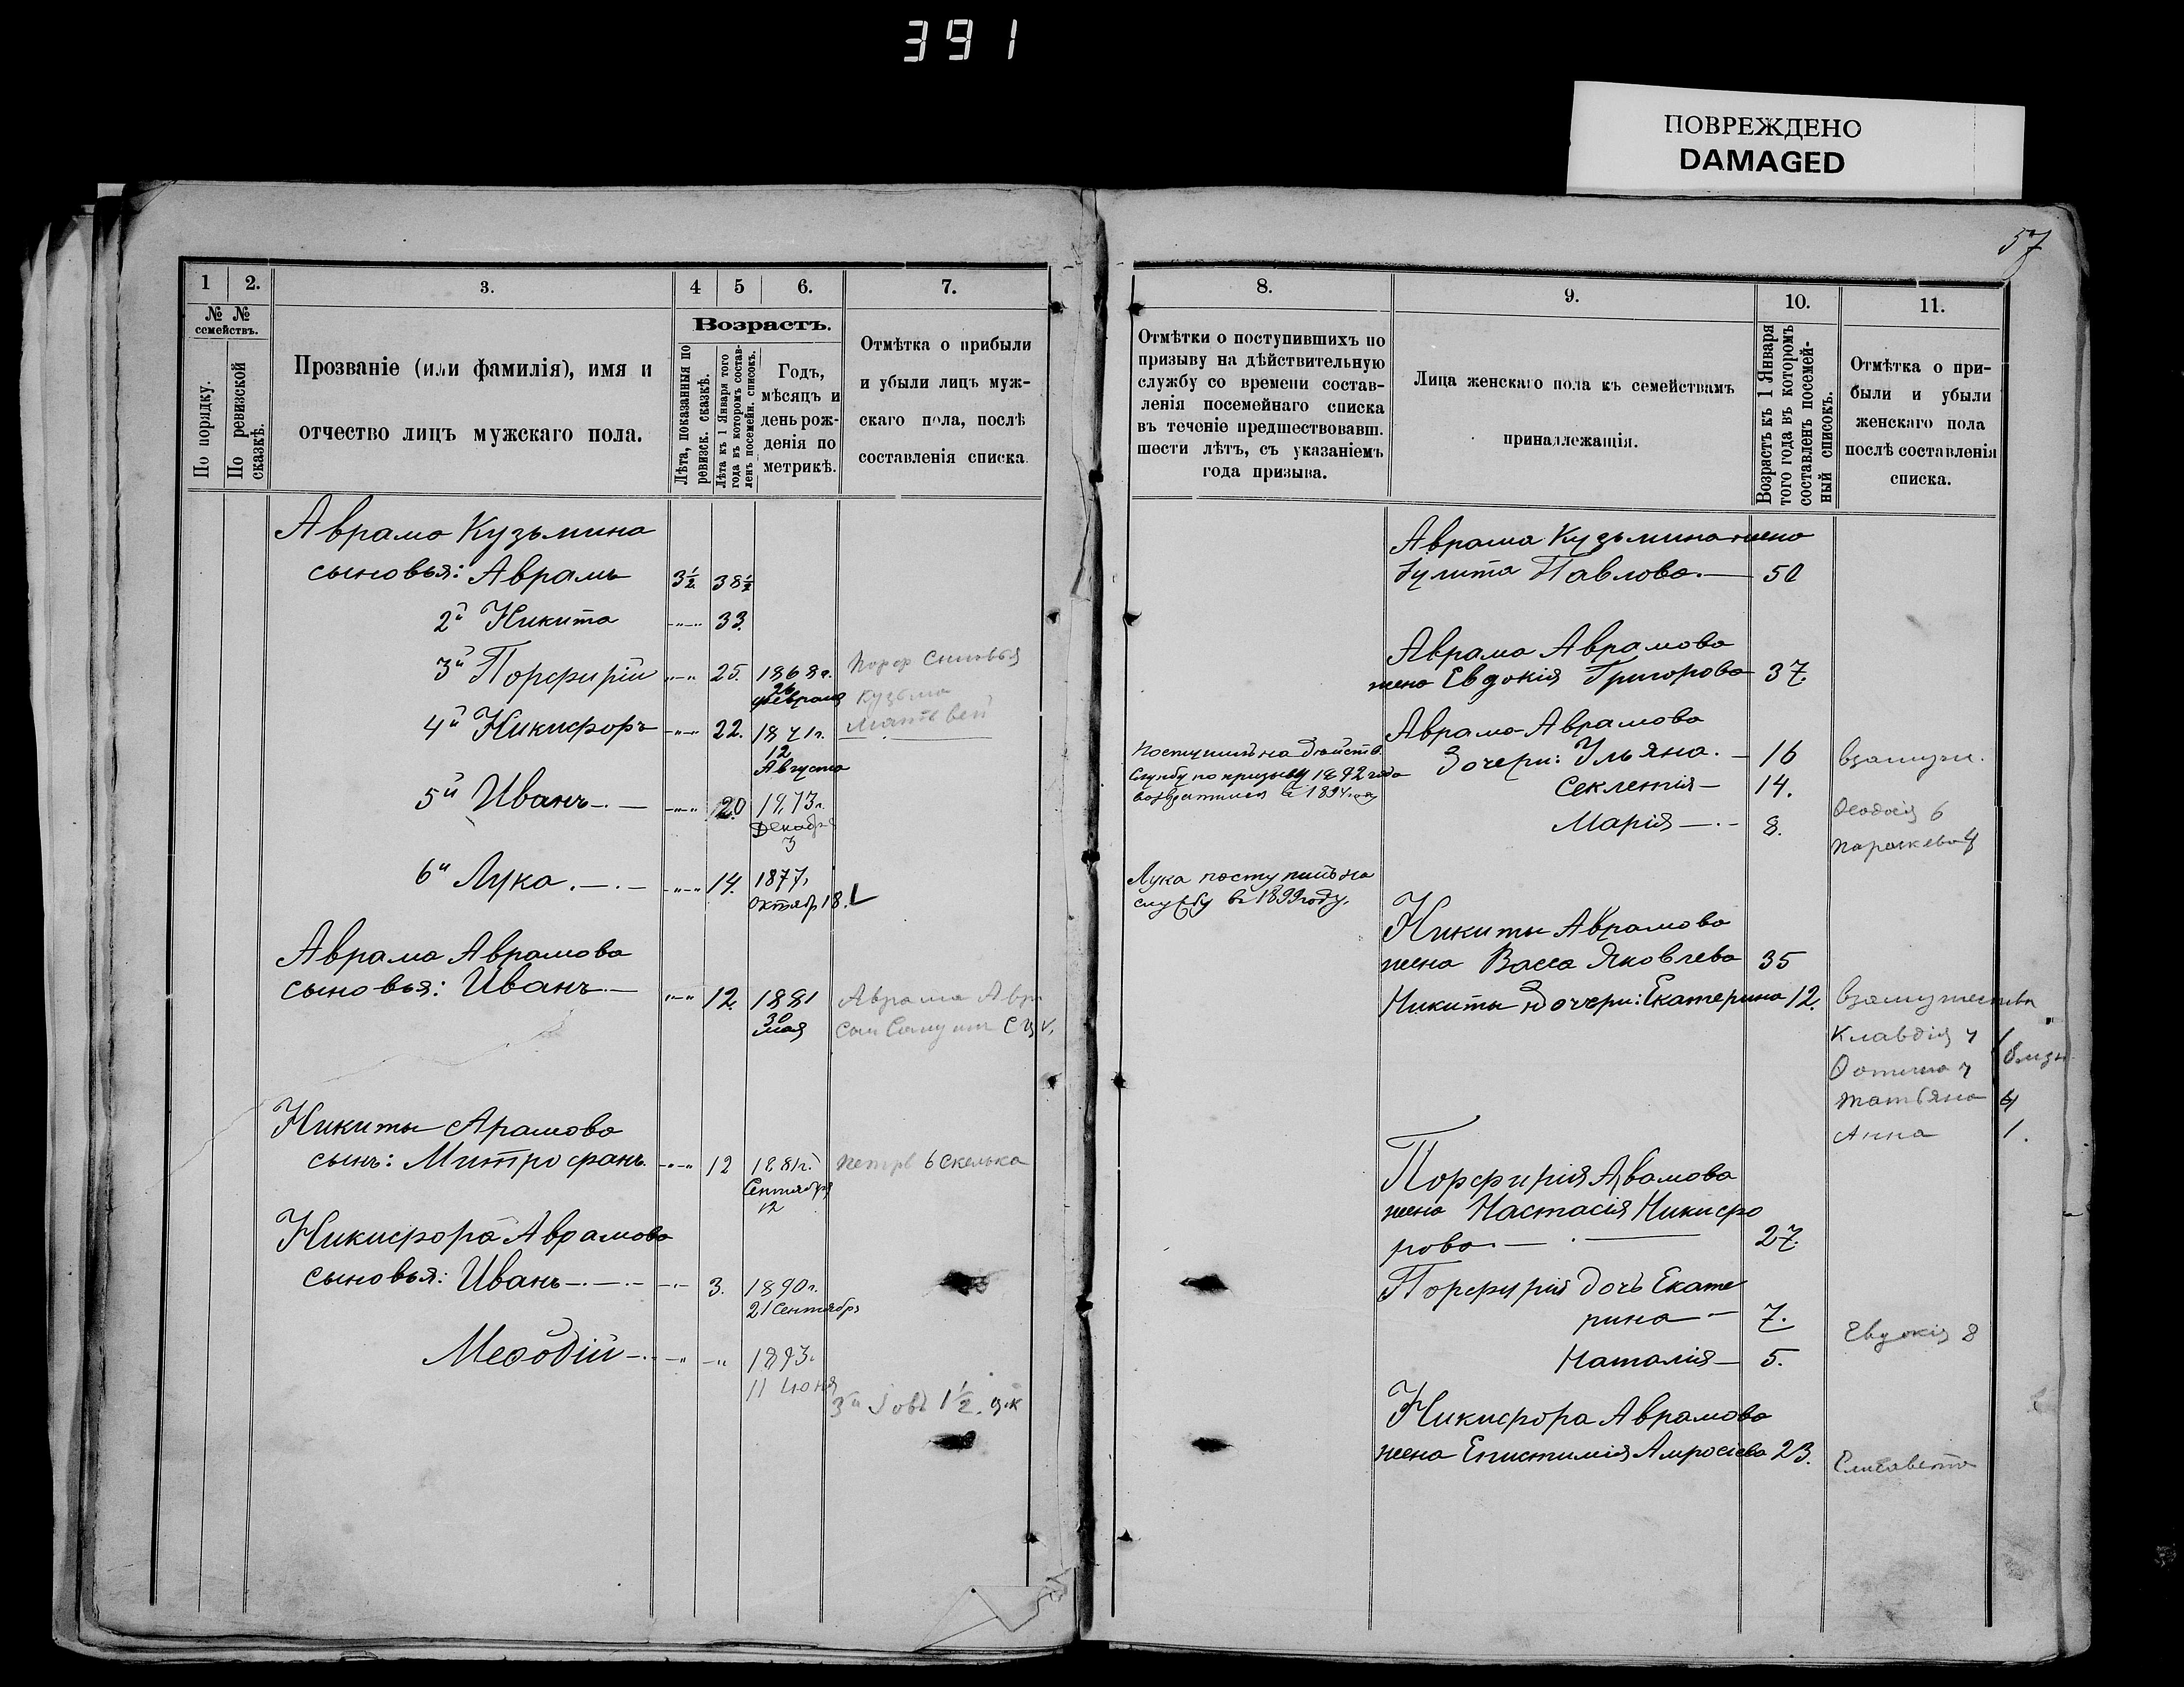 391
ПОВРЕЖДЕНО
DAMAGED
57
1
2.
3.
4
5
6.
7.
№ №
семействъ.
По порядку.
По ревизской
сказкѣ.
Прозваніе (или фамилія), имя и
отчество лицъ мужскаго пола.
Возрастъ.
Лѣта, показанныя по
ревизск. сказкѣ.
Лѣта къ 1 Января того
года въ которомъ состав-
ленъ посемейн. списокъ.
Годъ,
мѣсяцъ и
день рож-
денія по
метрикѣ.
Отмѣтка о прибыли
и убыли лицъ муж-
скаго пола, послѣ
составленія списка
Аврама Кузьмина
сыновья: Аврамъ 3½ 38½
2й Никита -"-" 33.
3й Порфирій -"-" 25. 1868г.
26
февраля
Порф сыновья
Кузьма
Матвей
4й Никифоръ -"-" 22. 1871г.
12
Августа
5й Иванъ.— -"-" 20 1873г.
Декабр
3
6й Лука.—.— -"-" 14. 1877.
Октябр 18.
Аврама Аврамова
сыновья: Иванъ.— "-" 12. 1881
30
мая
Аврама Авр.
Никиты Арамова
сынъ: Митрофанъ. -"-" 12 1881г.
Сентября
12
Петръ 6
Никифора Аврамова
сыновья: Иванъ—.—.— -"- 3. 1890г.
21 Сентябрь
Меѳодій—. -" -" 1893г.
11 Июня
3й Іовъ 1½.
8.
9.
10.
11.
Отмѣтки о поступившихъ по
призыву на дѣйствительную
службу со времени состав-
ленія посемейнаго списка
въ теченіе предшествовавш.
шести лѣтъ, съ указаніемъ
года призыва.
Лица женскаго пола къ семействамъ
принадлежащія.
Возрастъ къ 1 Января
того года въ которомъ
составленъ посемей-
ный списокъ.
Отмѣтка о при-
были и убыли
женскаго пола
послѣ составленія
списка.
Аврама Кузьмина жена
Іулита Павлова.— 50
Аврама Аврамова
жена Евдокія Григорова 37.
Аврама Аврамова
Дочери: Ульяна. — 16
Секлетія — 14.
Марія —.- 8.
Поступилъ на дѣйств.
службу по призыву 1892 года
возвратился в 1894 году
взамуж.
Ѳеодосія 6
Параскева 4
Лука поступилъ на
службу въ 1899 году.
Никиты Аврамова
жена Васса Яковлева 35
Никиты дочери: Екатерина 12. взамужества
Клавдія 7
Фотина 7
близн
Татьяна 4
Анна 1.
Порфирія Авамова
жена Настасія Никифо
рова.— 27.
Порфирія дочь Екате
рина — 7.
Евдокія 8
Наталія — 5.
Никифора Аврамова
жена Епистимія Амросіева 23.
Елисавета